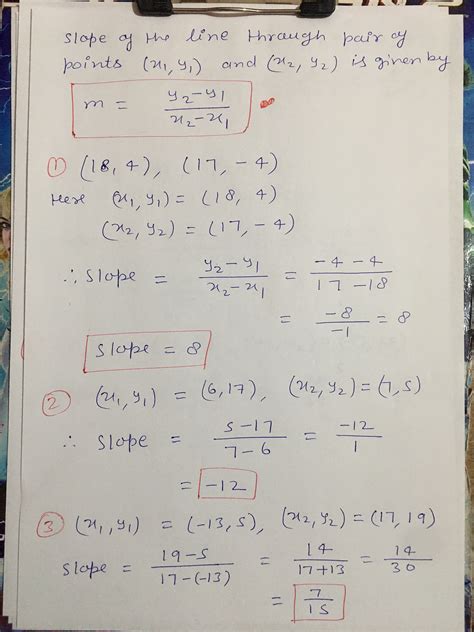 slope of the line through pair of
points (x₁, y₁) and (x₂, y₂) is given by
m = (y₂-y₁)/(x₂-x₁)
① (18, 4), (17, -4)
Here (x₁, y₁) = (18, 4)
(x₂, y₂) = (17, -4)
∴ slope = (y₂-y₁)/(x₂-x₁) = (-4-4)/(17-18)
= -8/-1 = 8
slope = 8
② (x₁, y₁) = (6, 17), (x₂, y₂) = (7, 5)
∴ slope = (5-17)/(7-6) = -12/1
= -12
③ (x₁, y₁) = (-13, 5), (x₂, y₂) = (17, 19)
slope = (19-5)/(17-(-13)) = 14/(17+13) = 14/30
= 7/15